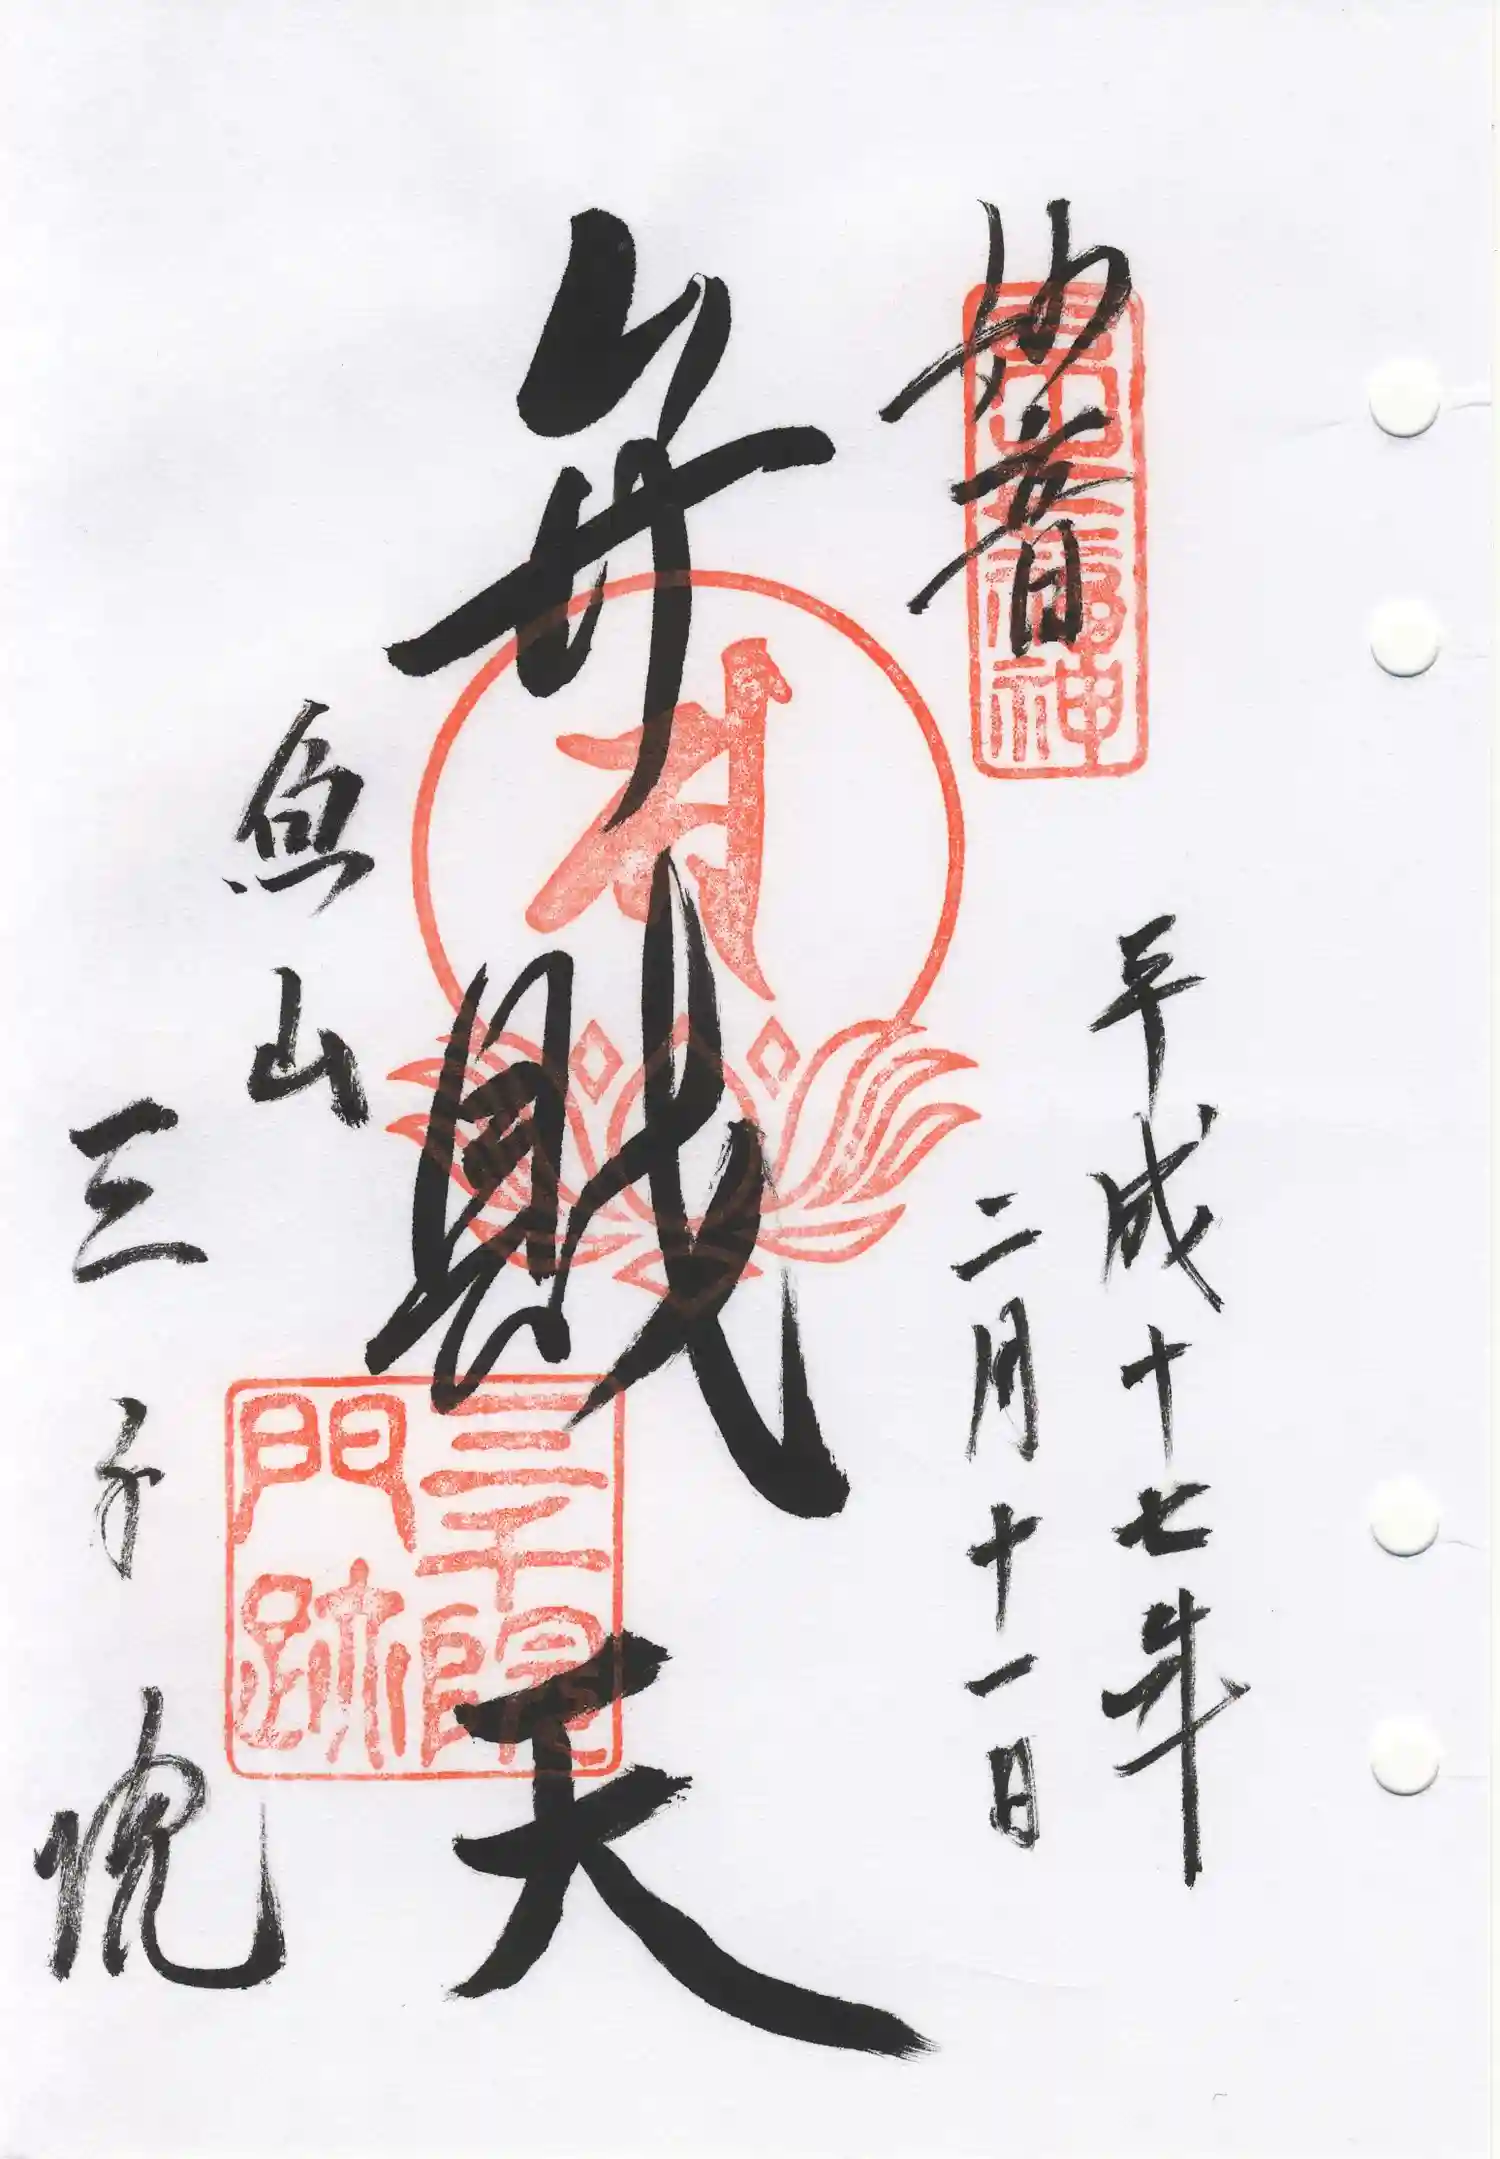 妙音
京之七福神
平成十七年
二月十一日
弁財天
三千院
門跡
魚山
三千院